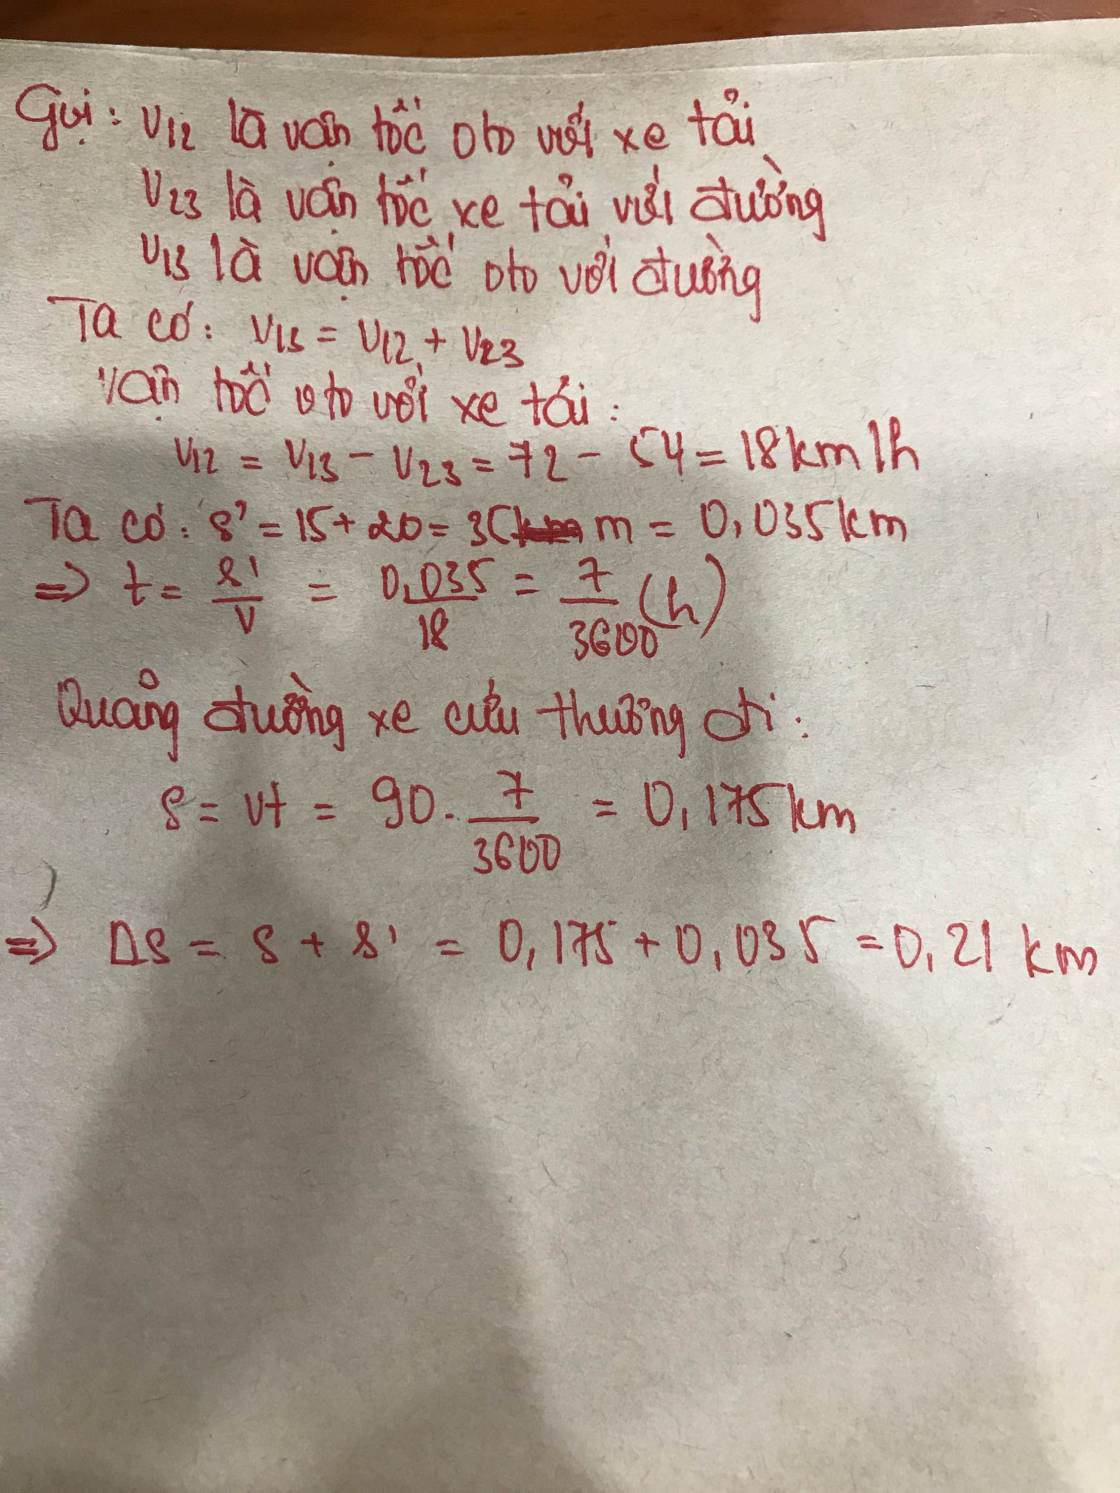 Gọi: V12 là vận tốc oto với xe tải
V23 là vận tốc xe tải với đường
V13 là vận tốc oto với đường
Ta có: V13 = V12 + V23
Vận tốc oto với xe tải:
V12 = V13 - V23 = 72 - 54 = 18km/h
Ta có: S' = 15 + 20 = 35 m = 0,035km
=> t = S'/V = 0,035/18 = 7/3600 (h)
Quảng đường xe cứu thương đi:
S = vt = 90. 7/3600 = 0,175km
=> ΔS = S + S' = 0,175 + 0,035 = 0,21 km